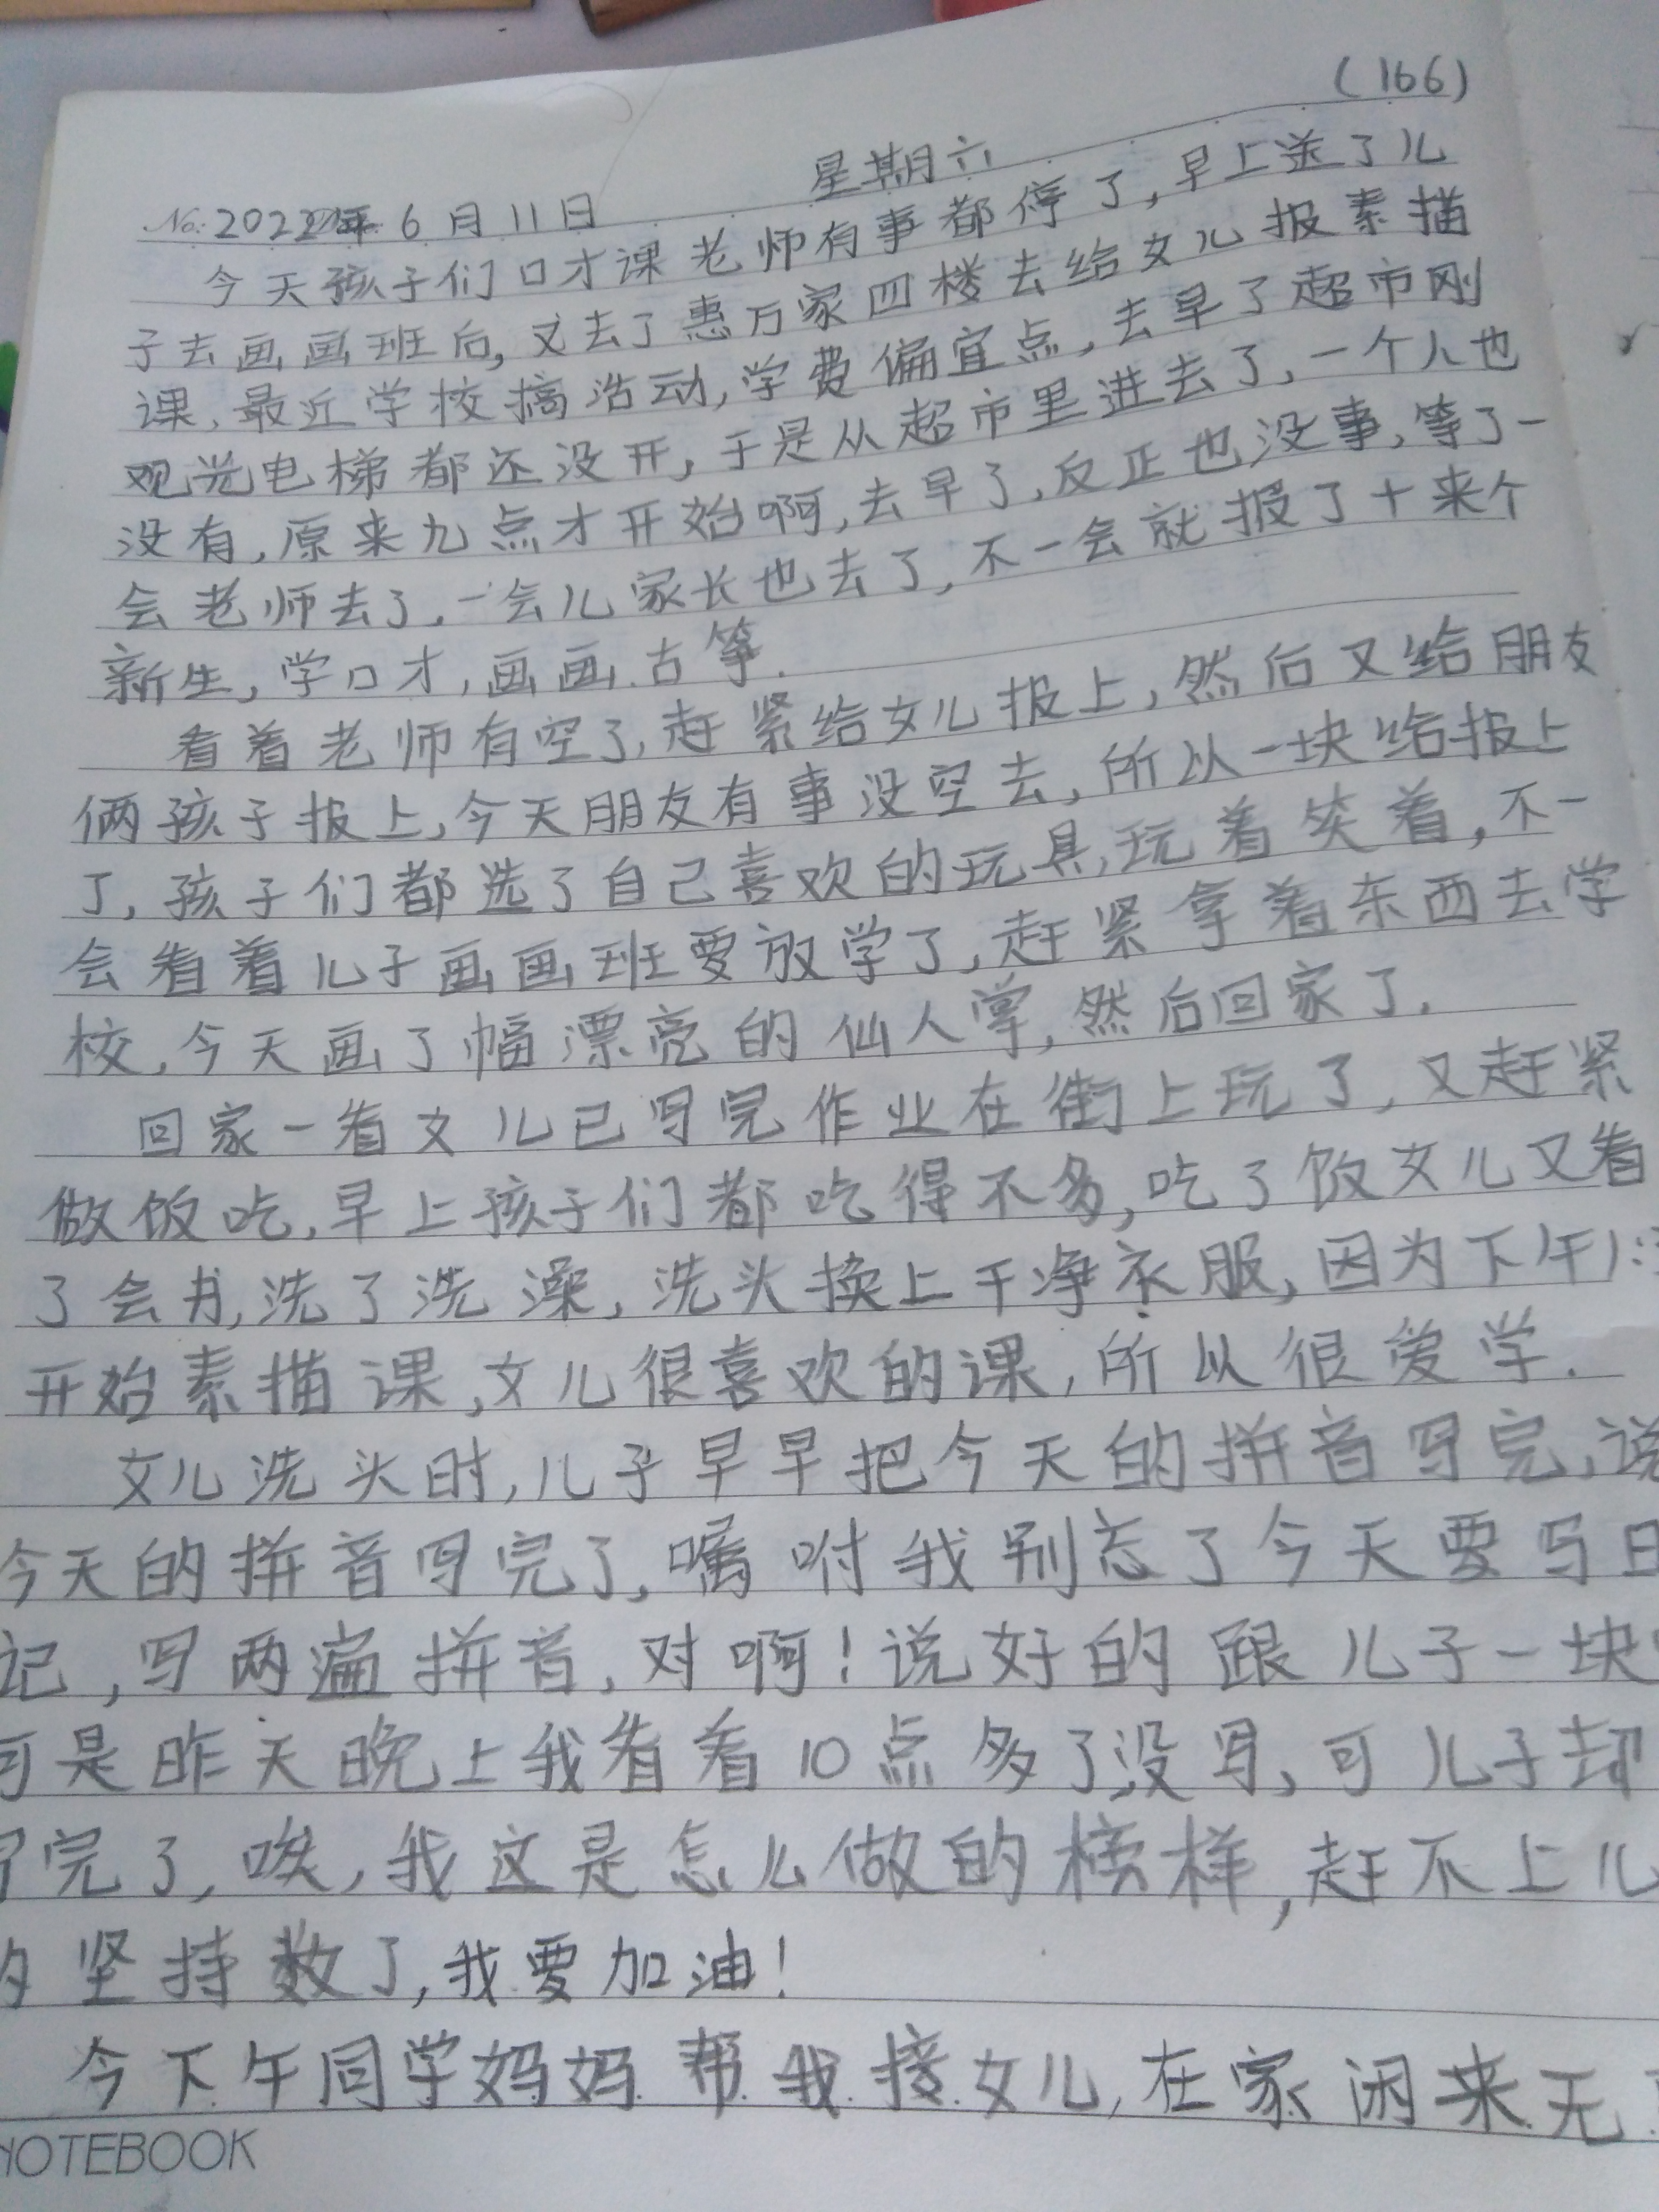 (166)
星期六
No. 2022年 6月11日
今天孩子们口才课老师有事都停了,早上送了儿
子去画画班后,又去了惠万家四楼去给女儿报素描
课,最近学校搞活动,学费偏宜点,去早了超市刚
观光电梯都还没开,于是从超市里进去了,一个人也
没有,原来九点才开始啊,去早了,反正也没事,等了一
会老师去了,一会儿家长也去了,不一会就报了十来个
新生,学口才,画画.古筝.
看着老师有空了,赶紧给女儿报上,然后又给朋友
俩孩子报上,今天朋友有事没空去,所以一块给报上
了,孩子们都选了自己喜欢的玩具,玩着笑着,不一
会看着儿子画画班要放学了,赶紧拿着东西去学
校,今天画了幅漂亮的仙人掌,然后回家了.
回家一看女儿已写完作业在街上玩了,又赶紧
做饭吃,早上孩子们都吃得不多,吃了饭女儿又看
了会书,洗了洗澡,洗头换上干净衣服,因为下午1:
开始素描课,女儿很喜欢的课,所以很爱学.
女儿洗头时,儿子早早把今天的拼音写完,说
今天的拼音写完了,嘱咐我别忘了今天要写日
记,写两遍拼音,对啊!说好的跟儿子一块
可是昨天晚上我看看10点多了没写,可儿子却
写完了,唉,我这是怎么做的榜样,赶不上儿
的坚持数了,我要加油!
今下午同学妈妈帮我接女儿,在家闲来无
NOTEBOOK